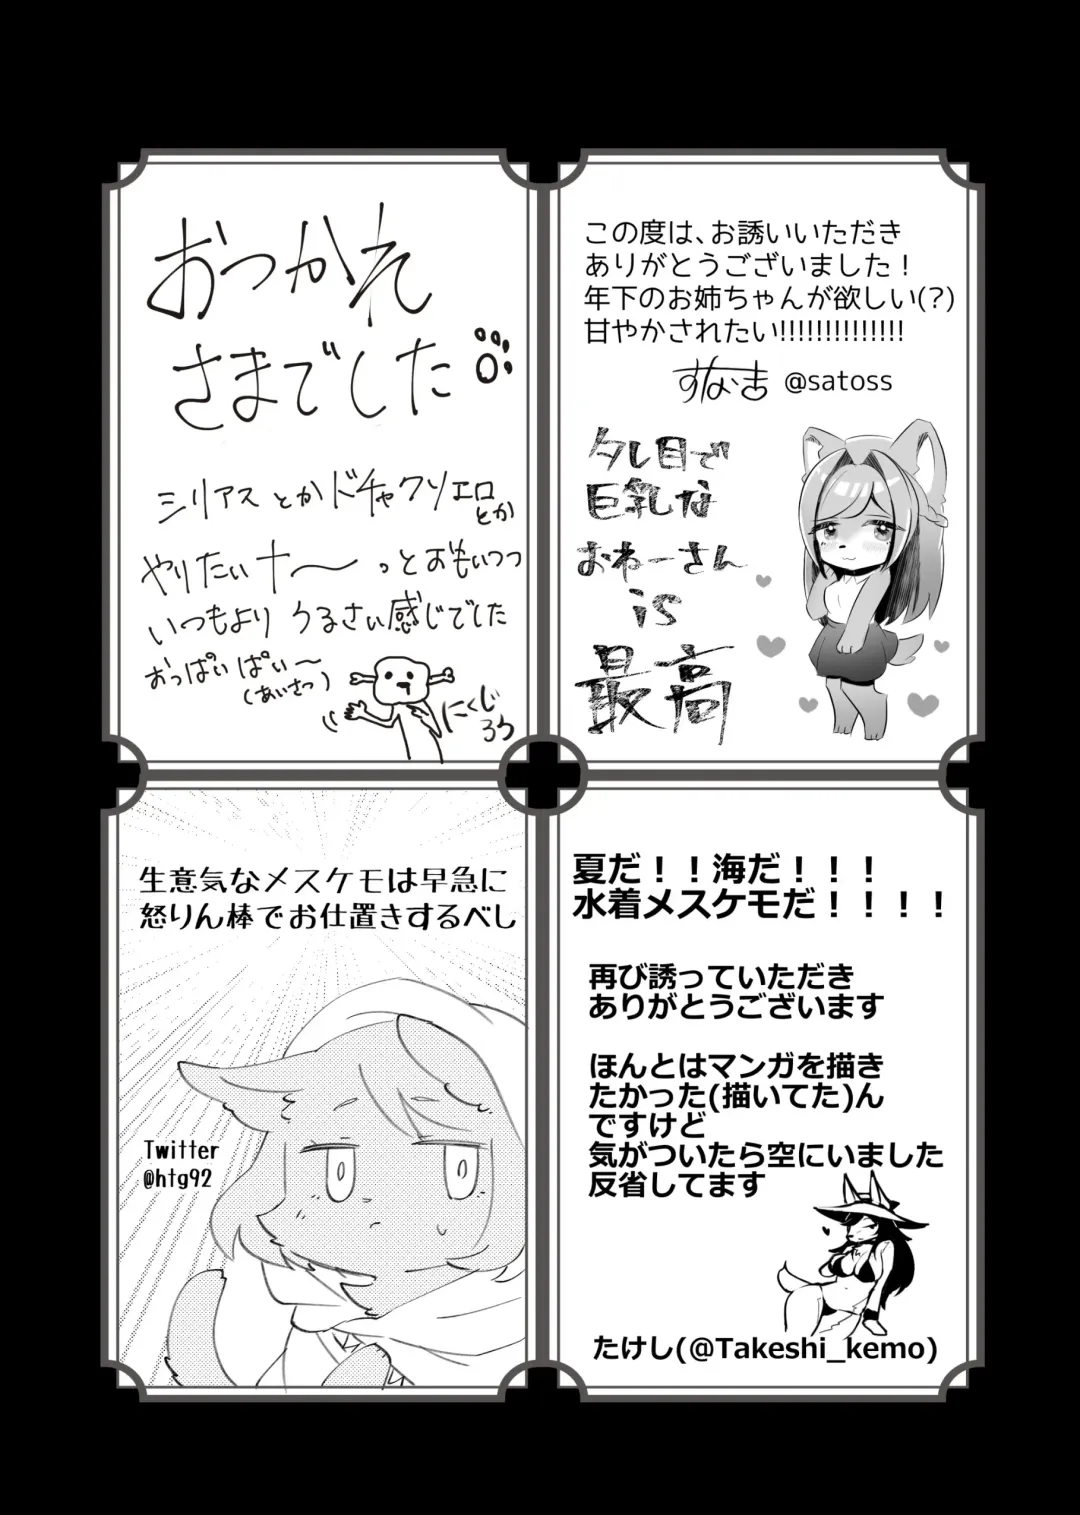 おつかれ
さまでした
シリアスとかドチャクソエロ
とか
やりたいナ〜っとおもいつつ
いつもよりうるさい感じでした
おっぱいぱい〜
(あいさつ)
にくじ
ろう
この度は、お誘いいただき
ありがとうございました！
年下のお姉ちゃんが欲しい(?)
甘やかされたい!!!!!!!!!!!!!!
すな吉 @satoss
タレ目で
巨乳な
おねーさん
is
最高
生意気なメスケモは早急に
怒りん棒でお仕置きするべし
Twitter
@htg92
夏だ！！海だ！！！
水着メスケモだ！！！！
再び誘っていただき
ありがとうございます
ほんとはマンガを描き
たかった(描いてた)ん
ですけど
気がついたら空にいました
反省してます
たけし(@Takeshi_kemo)